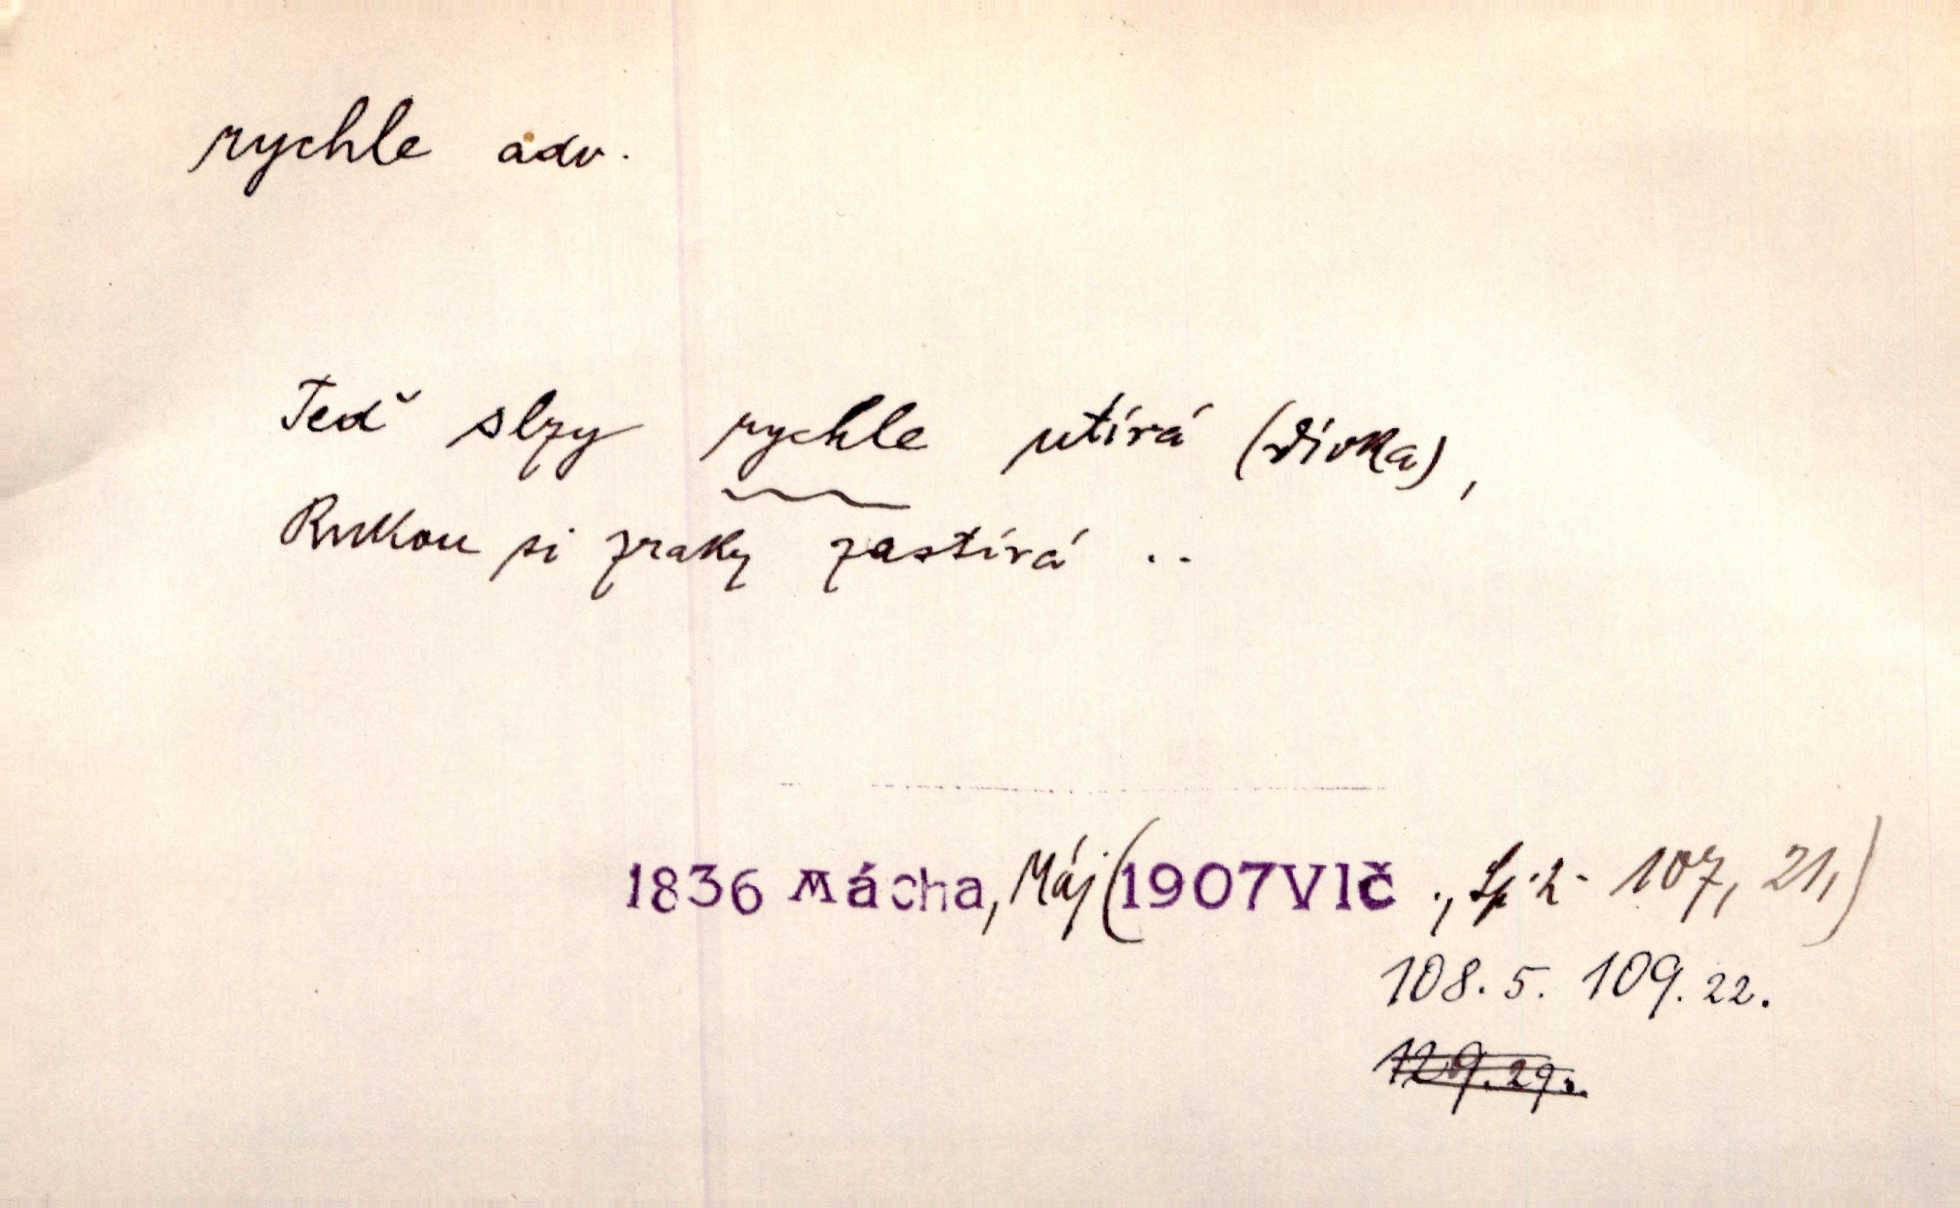 rychle adv.
Teď slzy rychle utírá (dívka),
Rukou si zraky zastírá ..
1836 Mácha, Máj (1907 Vlč., Sp. 2. 107, 21,)
108. 5. 109. 22.
129. 29.